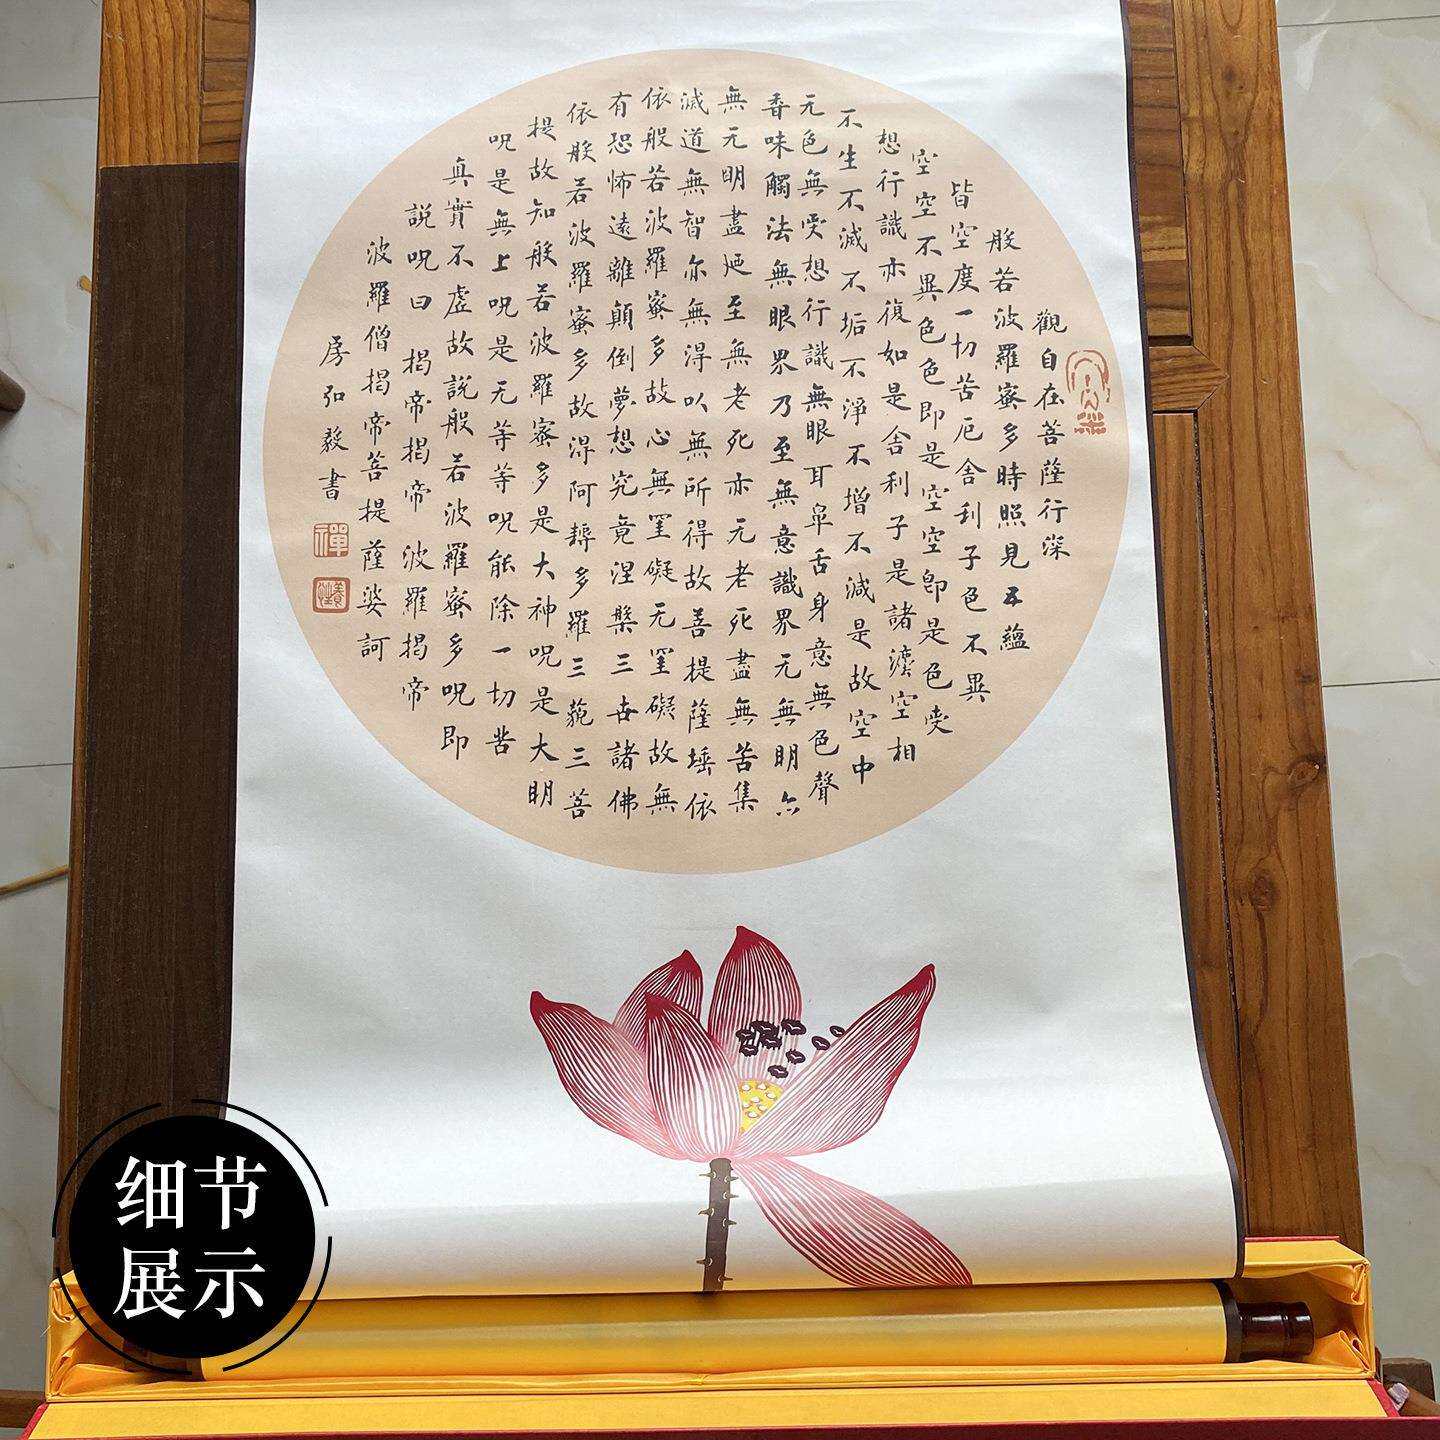 觀自在菩薩行深
般若波羅蜜多時照見五蘊
皆空度一切苦厄舍利子色不異
空空不異色色即是空空即是色受
想行識亦復如是舍利子是諸灋空相
不生不滅不垢不淨不增不減是故空中
无色無受想行識無眼耳鼻舌身意無色聲
香味觸法無眼界乃至無意識界无無明亦
無无明盡廼至無老死亦无老死盡無苦集
滅道無智亦無得以無所得故菩提薩埵依
依般若波羅蜜多故心無罣礙无罣礙故無
有恐怖遠離顛倒夢想究竟涅槃三世諸佛
依般若波羅蜜多故得阿耨多羅三藐三菩
提故知般若波羅蜜多是大神呪是大明
呪是無上呪是无等等呪能除一切苦
真實不虛故說般若波羅蜜多呪即
說呪曰 揭帝揭帝 波羅揭帝
波羅僧揭帝菩提薩婆訶
房弘毅書
禪
養性
细节
展示